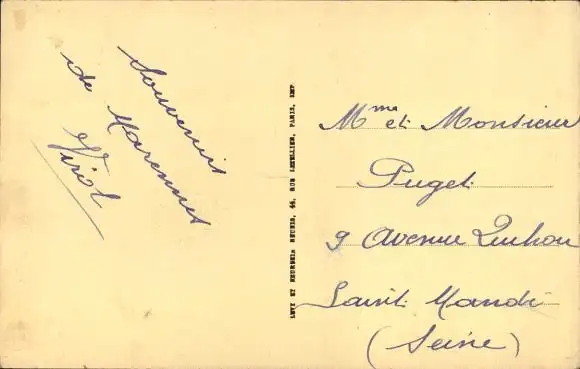 Souvenir
de Marennes
Viriol
LEVY ET NEURDEIN REUNIS, 44, RUE LETELLIER, PARIS, IMP.
Mme et Monsieur
Puget
9 avenue Quihou
Saint Mandé
(Seine)